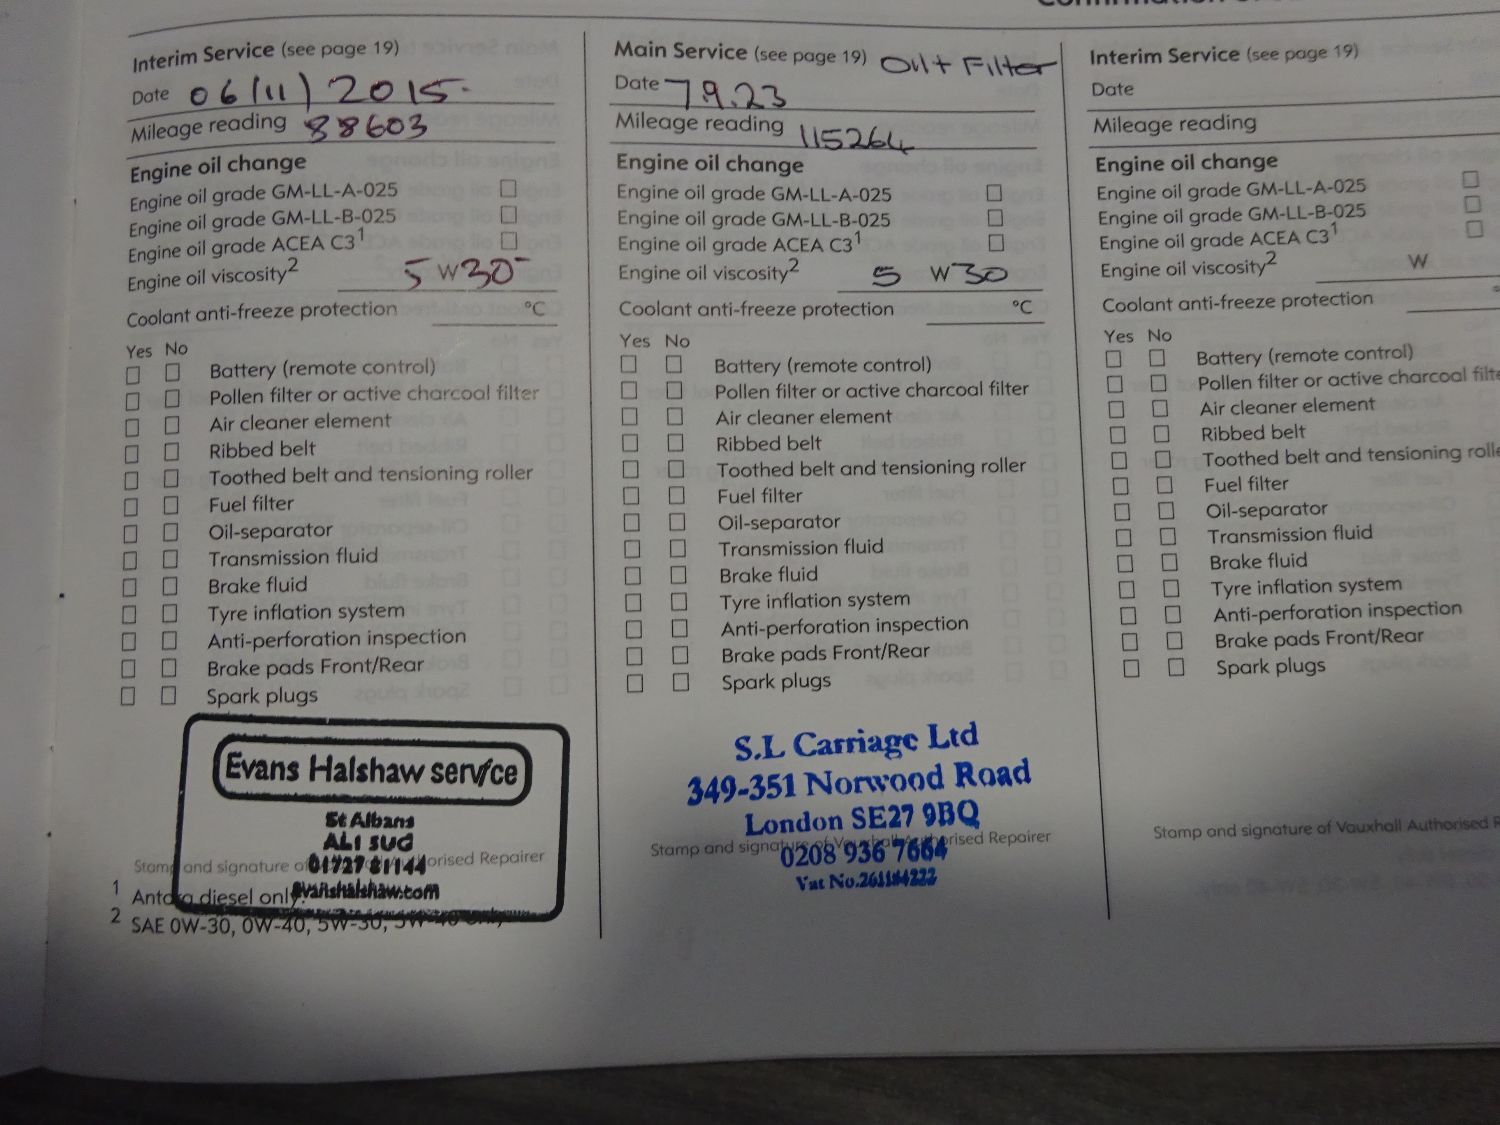 Interim Service (see page 19)
Date 06/11/2015.
Mileage reading 88603
Engine oil change
Engine oil grade GM-LL-A-025
Engine oil grade GM-LL-B-025
Engine oil grade ACEA C3¹
Engine oil viscosity² 5 W 30
Coolant anti-freeze protection °C
Yes No
Battery (remote control)
Pollen filter or active charcoal filter
Air cleaner element
Ribbed belt
Toothed belt and tensioning roller
Fuel filter
Oil-separator
Transmission fluid
Brake fluid
Tyre inflation system
Anti-perforation inspection
Brake pads Front/Rear
Spark plugs
Evans Halshaw service
St Albans
AL1 5UD
01727 81144
evanshalshaw.com
Stamp and signature of orised Repairer
¹ Antara diesel only.
² SAE 0W-30, 0W-40, 5W-30, 5W-40 only
Main Service (see page 19) Oil + Filter
Date 7.9.23
Mileage reading 115264
Engine oil change
Engine oil grade GM-LL-A-025
Engine oil grade GM-LL-B-025
Engine oil grade ACEA C3¹
Engine oil viscosity² 5 W 30
Coolant anti-freeze protection °C
Yes No
Battery (remote control)
Pollen filter or active charcoal filter
Air cleaner element
Ribbed belt
Toothed belt and tensioning roller
Fuel filter
Oil-separator
Transmission fluid
Brake fluid
Tyre inflation system
Anti-perforation inspection
Brake pads Front/Rear
Spark plugs
S.L Carriage Ltd
349-351 Norwood Road
London SE27 9BQ
0208 936 7664
Vat No.261184222
Stamp and signature of Vauxhall Authorised Repairer
Interim Service (see page 19)
Date
Mileage reading
Engine oil change
Engine oil grade GM-LL-A-025
Engine oil grade GM-LL-B-025
Engine oil grade ACEA C3¹
Engine oil viscosity² W
Coolant anti-freeze protection
Yes No
Battery (remote control)
Pollen filter or active charcoal filte
Air cleaner element
Ribbed belt
Toothed belt and tensioning rolle
Fuel filter
Oil-separator
Transmission fluid
Brake fluid
Tyre inflation system
Anti-perforation inspection
Brake pads Front/Rear
Spark plugs
Stamp and signature of Vauxhall Authorised R